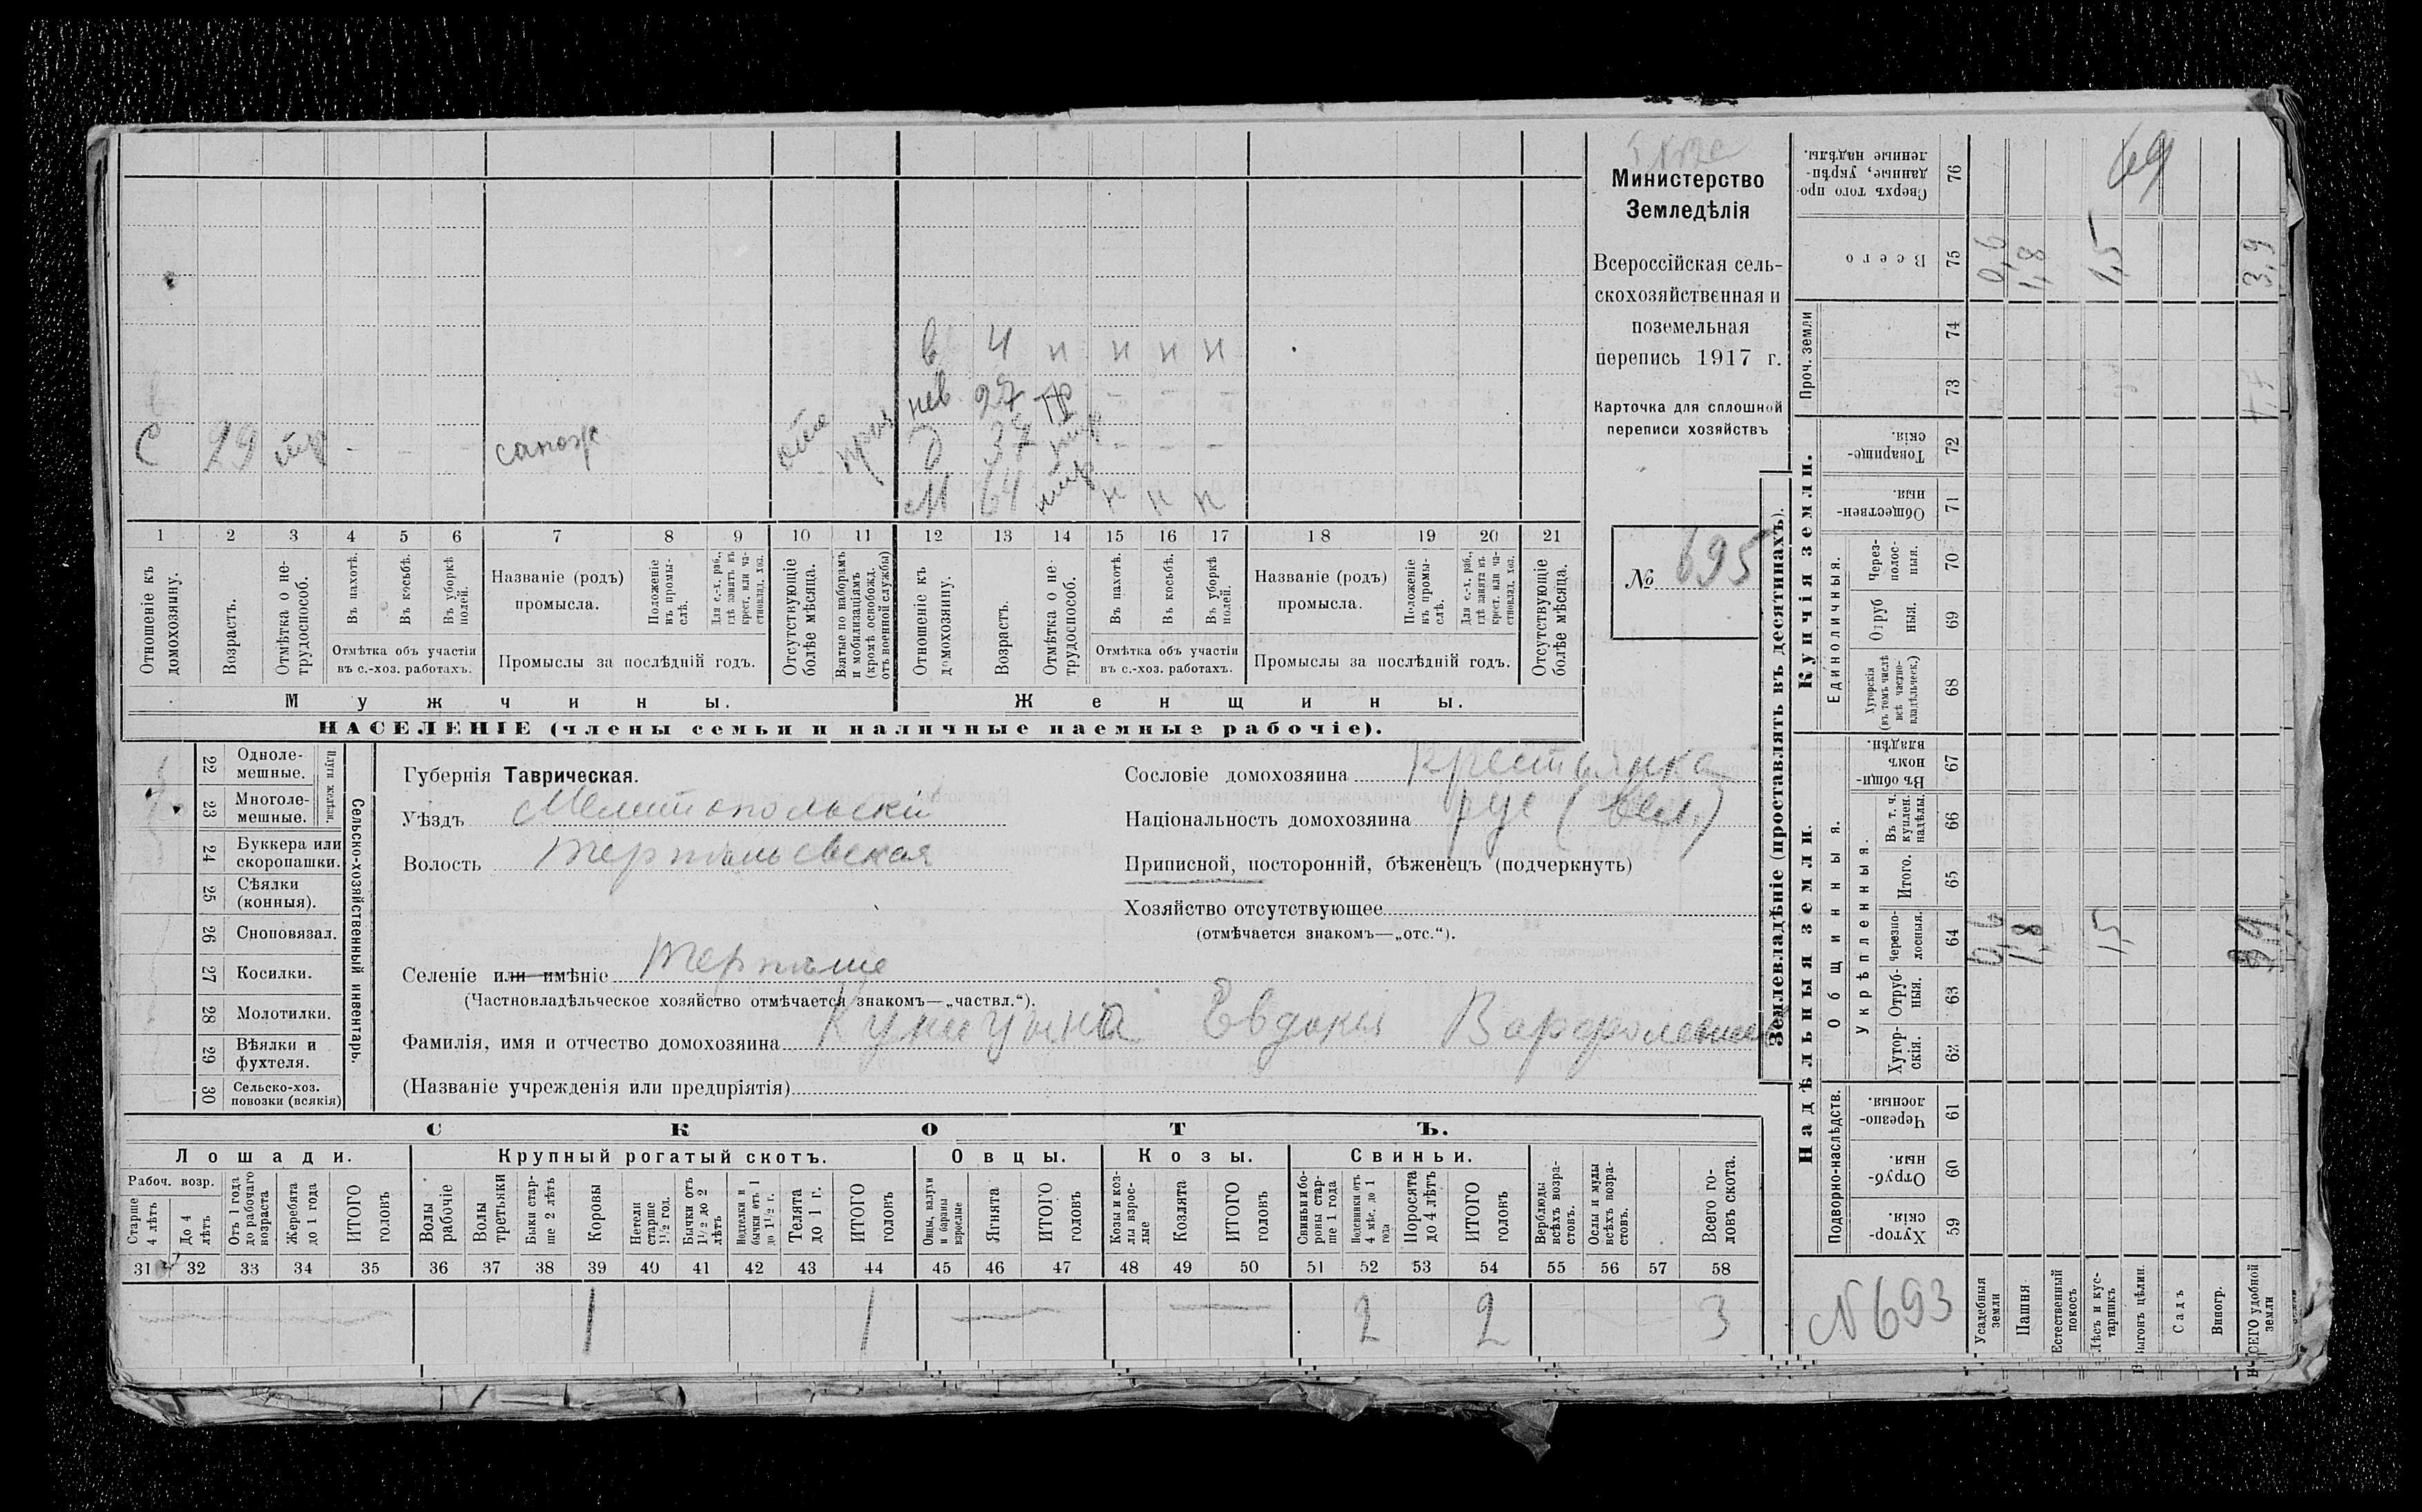 Министерство
Земледѣлія
Всероссійская сель-
скохозяйственная и
поземельная
перепись 1917 г.
Карточка для сплошной
переписи хозяйствъ
№ 695
в 4 н н н н
нев 27 тр - - -
С 29 тр - - - сапож
д 37 - - -
М 64 н н н
1 2 3 4 5 6 7 8 9 10 11 12 13 14 15 16 17 18 19 20 21
Отношеніе къ домохозяину.
Возрастъ.
Отмѣтка о не-трудоспособ.
Въ пахотѣ.
Въ косьбѣ.
Въ уборкѣ полей.
Отмѣтка объ участіи въ с.-хоз. работахъ.
Названіе (родъ) промысла.
Положеніе въ промы-слѣ.
Для с.-х. раб., гдѣ занятъ въ крест. или ча-стновлад. хоз.
Промыслы за послѣдній годъ.
Отсутствующіе болѣе мѣсяца.
Взятые по наборамъ и мобилизаціямъ (кромѣ освобожд. отъ военной службы)
Отношеніе къ домохозяину.
Возрастъ.
Отмѣтка о не-трудоспособ.
Въ пахотѣ.
Въ косьбѣ.
Въ уборкѣ полей.
Отмѣтка объ участіи въ с.-хоз. работахъ.
Названіе (родъ) промысла.
Положеніе въ промы-слѣ.
Для с.-х. раб., гдѣ занята въ крест. или ча-стновлад. хоз.
Промыслы за послѣдній годъ.
Отсутствующіе болѣе мѣсяца.
Мужчины. Женщины.
НАСЕЛЕНІЕ (члены семьи и наличные наемные рабочіе).
22 Одноле-мешные.
23 Многоле-мешные.
Плуги желѣзн.
24 Буккера или скоропашки.
25 Сѣялки (конныя).
26 Сноповязал.
27 Косилки.
28 Молотилки.
29 Вѣялки и фухтеля.
30 Сельско-хоз. повозки (всякія)
Сельско-хозяйственный инвентарь.
Губернія Таврическая.
Уѣздъ Мелитопольскій
Волость Терпѣньевская
Селеніе или имѣніе Терпѣніе
(Частновладѣльческое хозяйство отмѣчается знакомъ—„частвл.“).
Фамилія, имя и отчество домохозяина Куницына Евдокія
(Названіе учрежденія или предпріятія)
Сословіе домохозяина Крестьянка
Національность домохозяина рус (вел.)
Приписной, посторонній, бѣженецъ (подчеркнуть)
Хозяйство отсутствующее
(отмѣчается знакомъ—„отс.“).
СКОТЪ.
Лошади. Крупный рогатый скотъ. Овцы. Козы. Свиньи.
Рабоч. возр.
Старше 4 лѣтъ
До 4 лѣтъ
Отъ 1 года до рабочаго возраста
Жеребята до 1 года
ИТОГО головъ
Волы рабочіе
Волы третьяки
Быки стар-ше 2 лѣтъ
Коровы
Нетели старше 1½ год.
Бычки отъ 1½ до 2 лѣтъ
Подтелки и бычки отъ 1 до 1½ г.
Телята до 1 г.
ИТОГО головъ
Овцы, валухи и бараны взрослые
Ягнята
ИТОГО головъ
Козы и коз-лы взрос-лые
Козлята
ИТОГО головъ
Свиньи и бо-ровы стар-ше 1 года
Подсвинки отъ 4 мѣс. до 1 года
Поросята до 4 лѣтъ
ИТОГО головъ
Верблюды всѣхъ возра-стовъ.
Ослы и мулы всѣхъ возра-стовъ.
Всего го-ловъ скота.
31 32 33 34 35 36 37 38 39 40 41 42 43 44 45 46 47 48 49 50 51 52 53 54 55 56 57 58
1 1 2 2 3
Землевладѣніе (проставлять въ десятинахъ).
Купчія земли.
Надѣльныя земли.
Проч. земли
Единоличныя.
Общинныя.
Укрѣпленныя.
Подворно-наслѣдств.
76 Сверхъ того про-данные, укрѣп-ленные надѣлы.
75 Всего
74
73
72 Товарище-скія.
71 Обществен-ныя.
70 Через-полос-ныя.
69 Отруб ныя.
68 Хуторскія (въ томъ числѣ всѣ частно-владѣльческ.)
67 Въ общи-номъ владѣн.
66 Въ т. ч. куплен. надѣлы.
65 Итого.
64 Черезпо-лосныя.
63 Отруб-ныя.
62 Хутор-скія.
61 Черезпо-лосныя.
60 Отруб-ныя.
59 Хутор-скія.
69
0,6 1,8 1,5 3,9
0,6 1,8 1,5 3,9
№693
Усадебныя земли
Пашня
Естественный покосъ
Лѣсъ и кус-тарникъ
Выгонъ цѣлин.
Садъ
Виногр.
ВСЕГО удобной земли